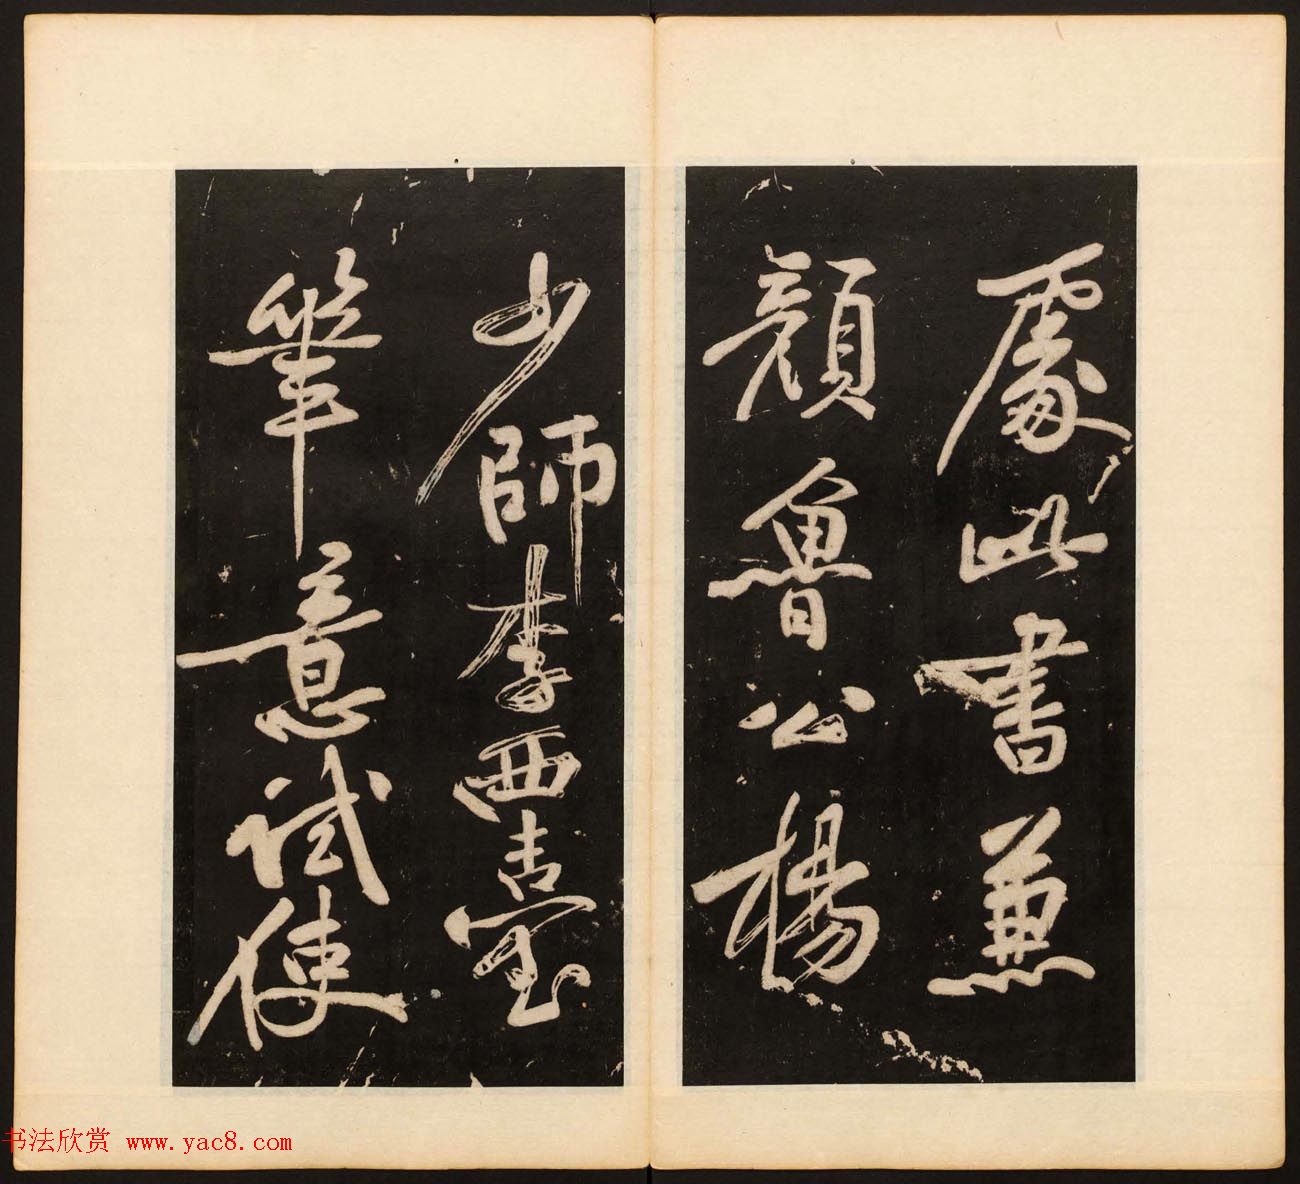 處此書兼
顏魯公楊
少師李西臺
筆意試使
书法欣赏 www.yac8.com